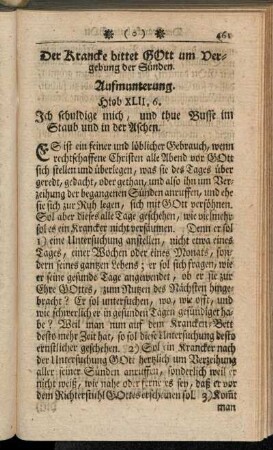 (o) 461
Der Krancke bittet GOtt um Ver-
gebung der Sünden.
Aufmunterung.
Hiob XLII, 6.
Ich schuldige mich, und thue Busse im
Staub und in der Aschen.
ES ist ein feiner und löblicher Gebrauch, wenn
rechtschaffene Christen alle Abend vor GOtt
sich stellen und überlegen, was sie des Tages über
geredt, gedacht, oder gethan, und also ihn um Ver-
zeihung der begangenen Sünden anruffen, und ehe
sie sich zur Ruh legen, sich mit GOtt versöhnen.
Sol aber dieses alle Tage geschehen, wie vielmehr
sol es ein Krancker nicht versäumen. Denn er sol
1) eine Untersuchung anstellen, nicht etwa eines
Tages, einer Wochen oder eines Monats, son-
dern seines gantzen Lebens; er sol sich fragen, wie
er seine gesunde Tage angewendet, ob er sie zur
Ehre GOttes, zum Nutzen des Nächsten hinge-
bracht? Er sol untersuchen, wo, wie offt, und
wie schwerlich er in gesunden Tagen gesündiget ha-
be? Weil man nun auf dem Krancken-Bett
desto mehr Zeit hat, so sol diese Untersuchung desto
ernstlicher geschehen. 2) Sol ein Krancker nach
der Untersuchung GOtt hertzlich um Verzeihung
aller seiner Sünden anruffen, sonderlich weil er
nicht weiß, wie nahe oder ferne es sey, daß er vor
dem Richterstuhl GOttes erscheinen sol. 3) Komt
man